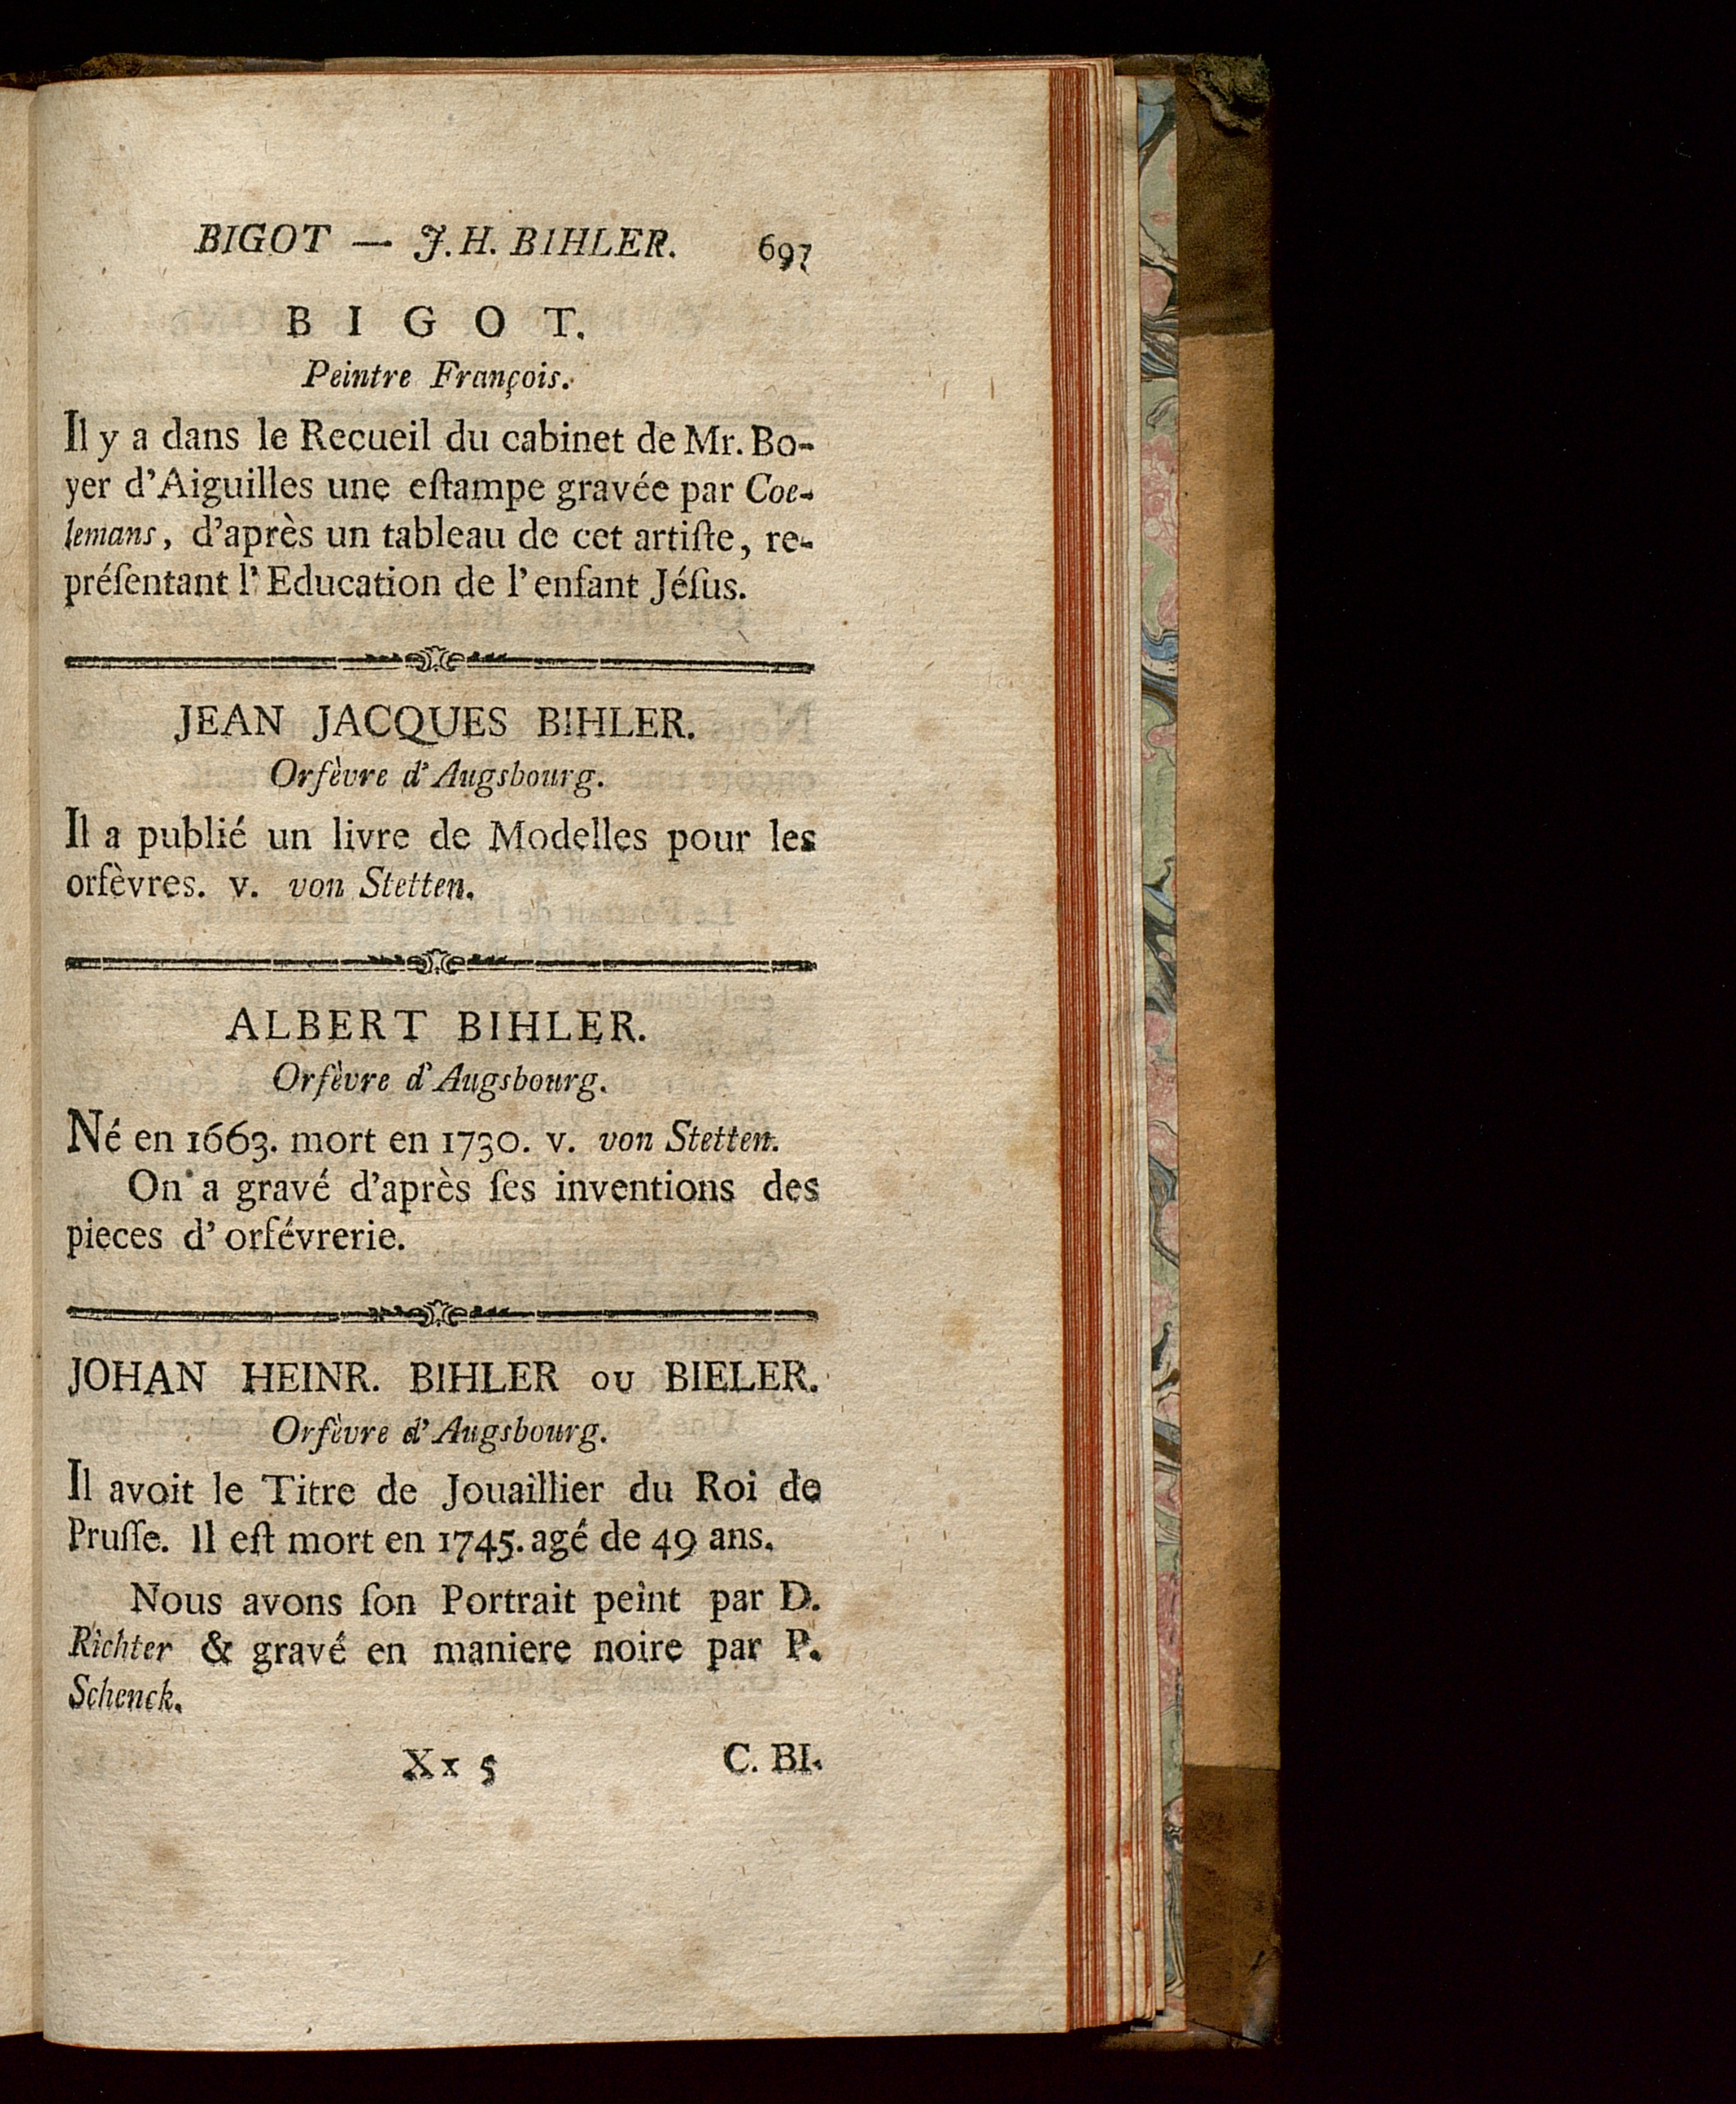 BIGOT — J. H. BIHLER. 697
BIGOT.
Peintre François.
Il y a dans le Recueil du cabinet de Mr. Bo-
yer d'Aiguilles une eſtampe gravée par Coe-
lemans, d'après un tableau de cet artiſte, re-
préſentant l'Education de l'enfant Jéſus.
JEAN JACQUES BIHLER.
Orfèvre d'Augsbourg.
Il a publié un livre de Modelles pour les
orfèvres. v. von Stetten.
ALBERT BIHLER.
Orfèvre d'Augsbourg.
Né en 1663. mort en 1730. v. von Stetten.
On a gravé d'après ſes inventions des
pieces d'orfévrerie.
JOHAN HEINR. BIHLER OU BIELER.
Orfèvre d'Augsbourg.
Il avoit le Titre de Jouaillier du Roi de
Pruſſe. Il eſt mort en 1745. agé de 49 ans.
Nous avons ſon Portrait peint par D.
Richter & gravé en maniere noire par P.
Schenck.
Xx 5 C. BI-